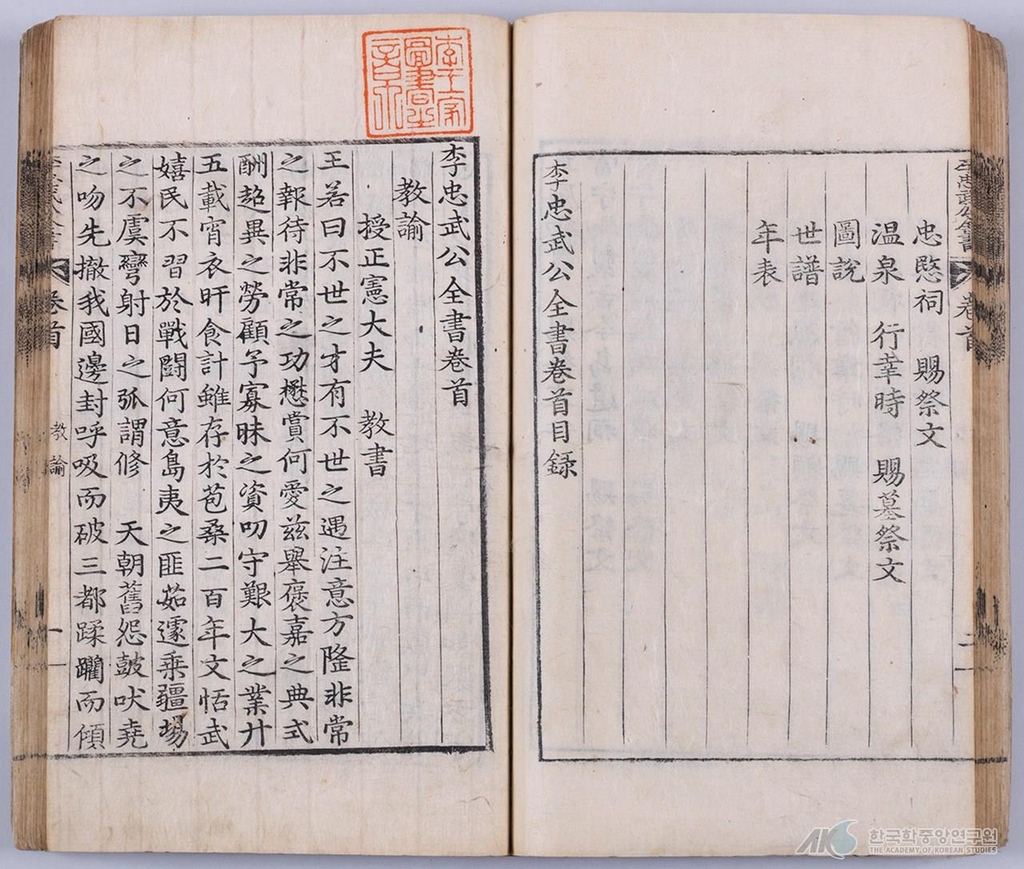 李忠武公全書 卷首
忠愍祠 賜祭文
温泉 行幸時 賜墓祭文
圖說
世譜
年表
李忠武公全書卷首目録
李王家
圖書之
章
李忠武公全書卷首
教諭
授正憲大夫 教書
王若曰不世之才有不世之遇注意方隆非常
之報待非常之功懋賞何愛兹舉褒嘉之典式
酬超異之勞顧予寡昧之資叨守艱大之業廾
五載宵衣旰食計雖存於苞桑二百年文恬武
嬉民不習於戰鬪何意島夷之匪茹遽乘疆埸
之不虞彎射日之弧謂修 天朝舊怨皷吠堯
之吻先撤我國邊封呼吸而破三都蹂躙而傾
卷首 教諭 一
AKS 한국학중앙연구원
THE ACADEMY OF KOREAN STUDIES